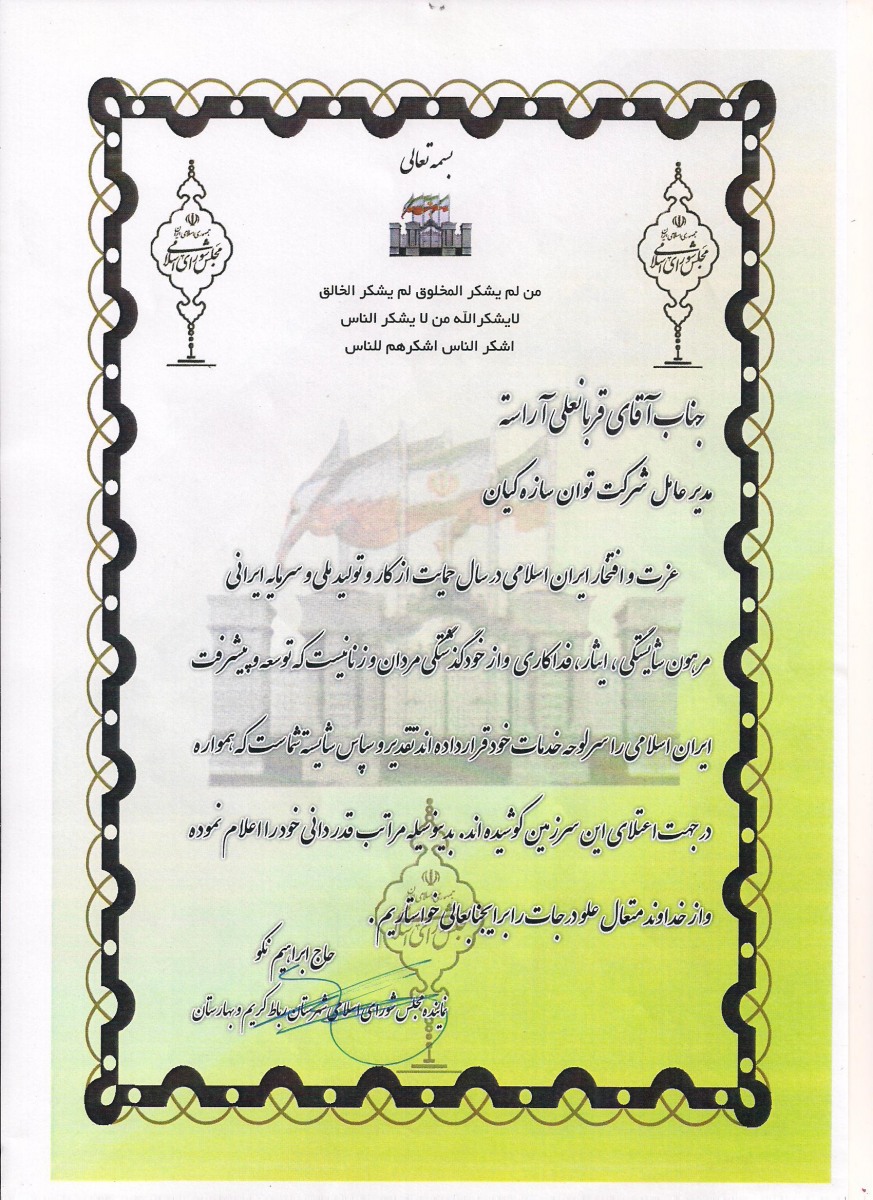 بسمه تعالی
جمهوری اسلامی ایران
مجلس شورای اسلامی
جمهوری اسلامی ایران
مجلس شورای اسلامی
من لم یشکر المخلوق لم یشکر الخالق
لایشکرالله من لا یشکر الناس
اشکر الناس اشکرهم للناس
جناب آقای قربانعلی آراسته
مدیر عامل شرکت توان سازه کیان
عزت و افتخار ایران اسلامی در سال حمایت از کار و تولید ملی و سرمایه ایرانی
مرهون شایستگی ، ایثار، فداکاری و از خودگذشتگی مردان و زنانیست که توسعه و پیشرفت
ایران اسلامی را سرلوحه خدمات خود قرار داده اند تقدیر و سپاس شایسته شماست که همواره
در جهت اعتلای این سرزمین کوشیده اند. بدینوسیله مراتب قدردانی خود را اعلام نموده
و از خداوند متعال علو درجات را برایجنابعالی خواستاریم .
جمهوری اسلامی ایران
مجلس شورای اسلامی
حاج ابراهیم نکو
نماینده مجلس شورای اسلامی شهرستان رباط کریم و بهارستان